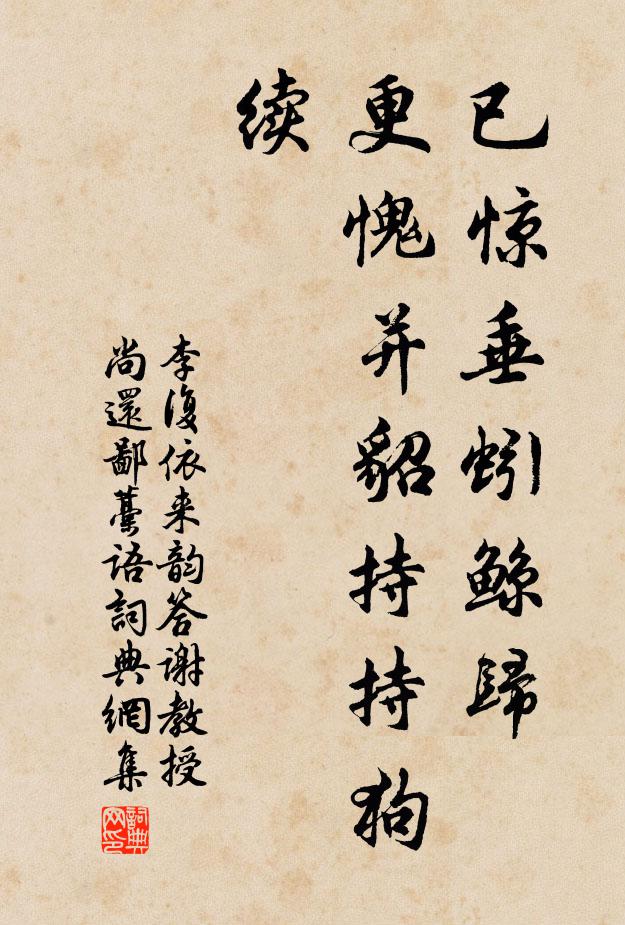 已惊垂蚓鲸歸
更愧并貂持持狗
续
李復依来韵答谢教授
尚還鄙藁语詞典網集
詞典
网印